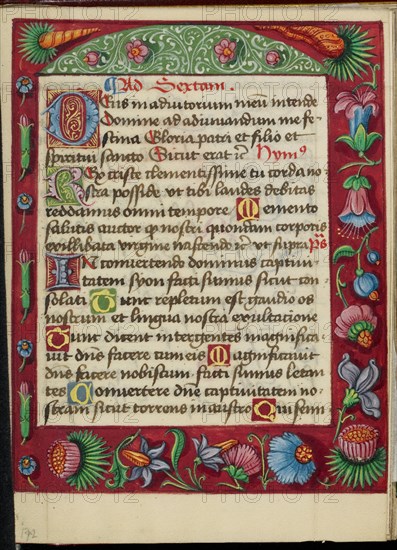 Ad Sextam.
Deus in adiutorium meū intende
Domine ad adiuuandum me fe-
stina Gloria patri et filio et
spiritui sancto Sicut erat ꝛc Hymꝰ
Rex criste clementissime tu corda no-
stra posside vt tibi laudes debitas
reddamus omni tempore Memento
salutis auctor qͦ nostri quondam corporis
ex illibata virgine nascendo ꝛc vt supra pꝰs
In conuertendo dominus captiui
tatem syon facti sumus sicut con
solati Tunc repletum est gaudio os
nostrum et lingua nostra exultacione
Tunc dicent inter gentes magnifica-
uit dn̄s facere cum eis Magnificauit
dn̄s facere nobiscum facti sumus letan
tes Conuertere dn̄e captiuitatem no-
stram sicut torrens in austro Qui semi